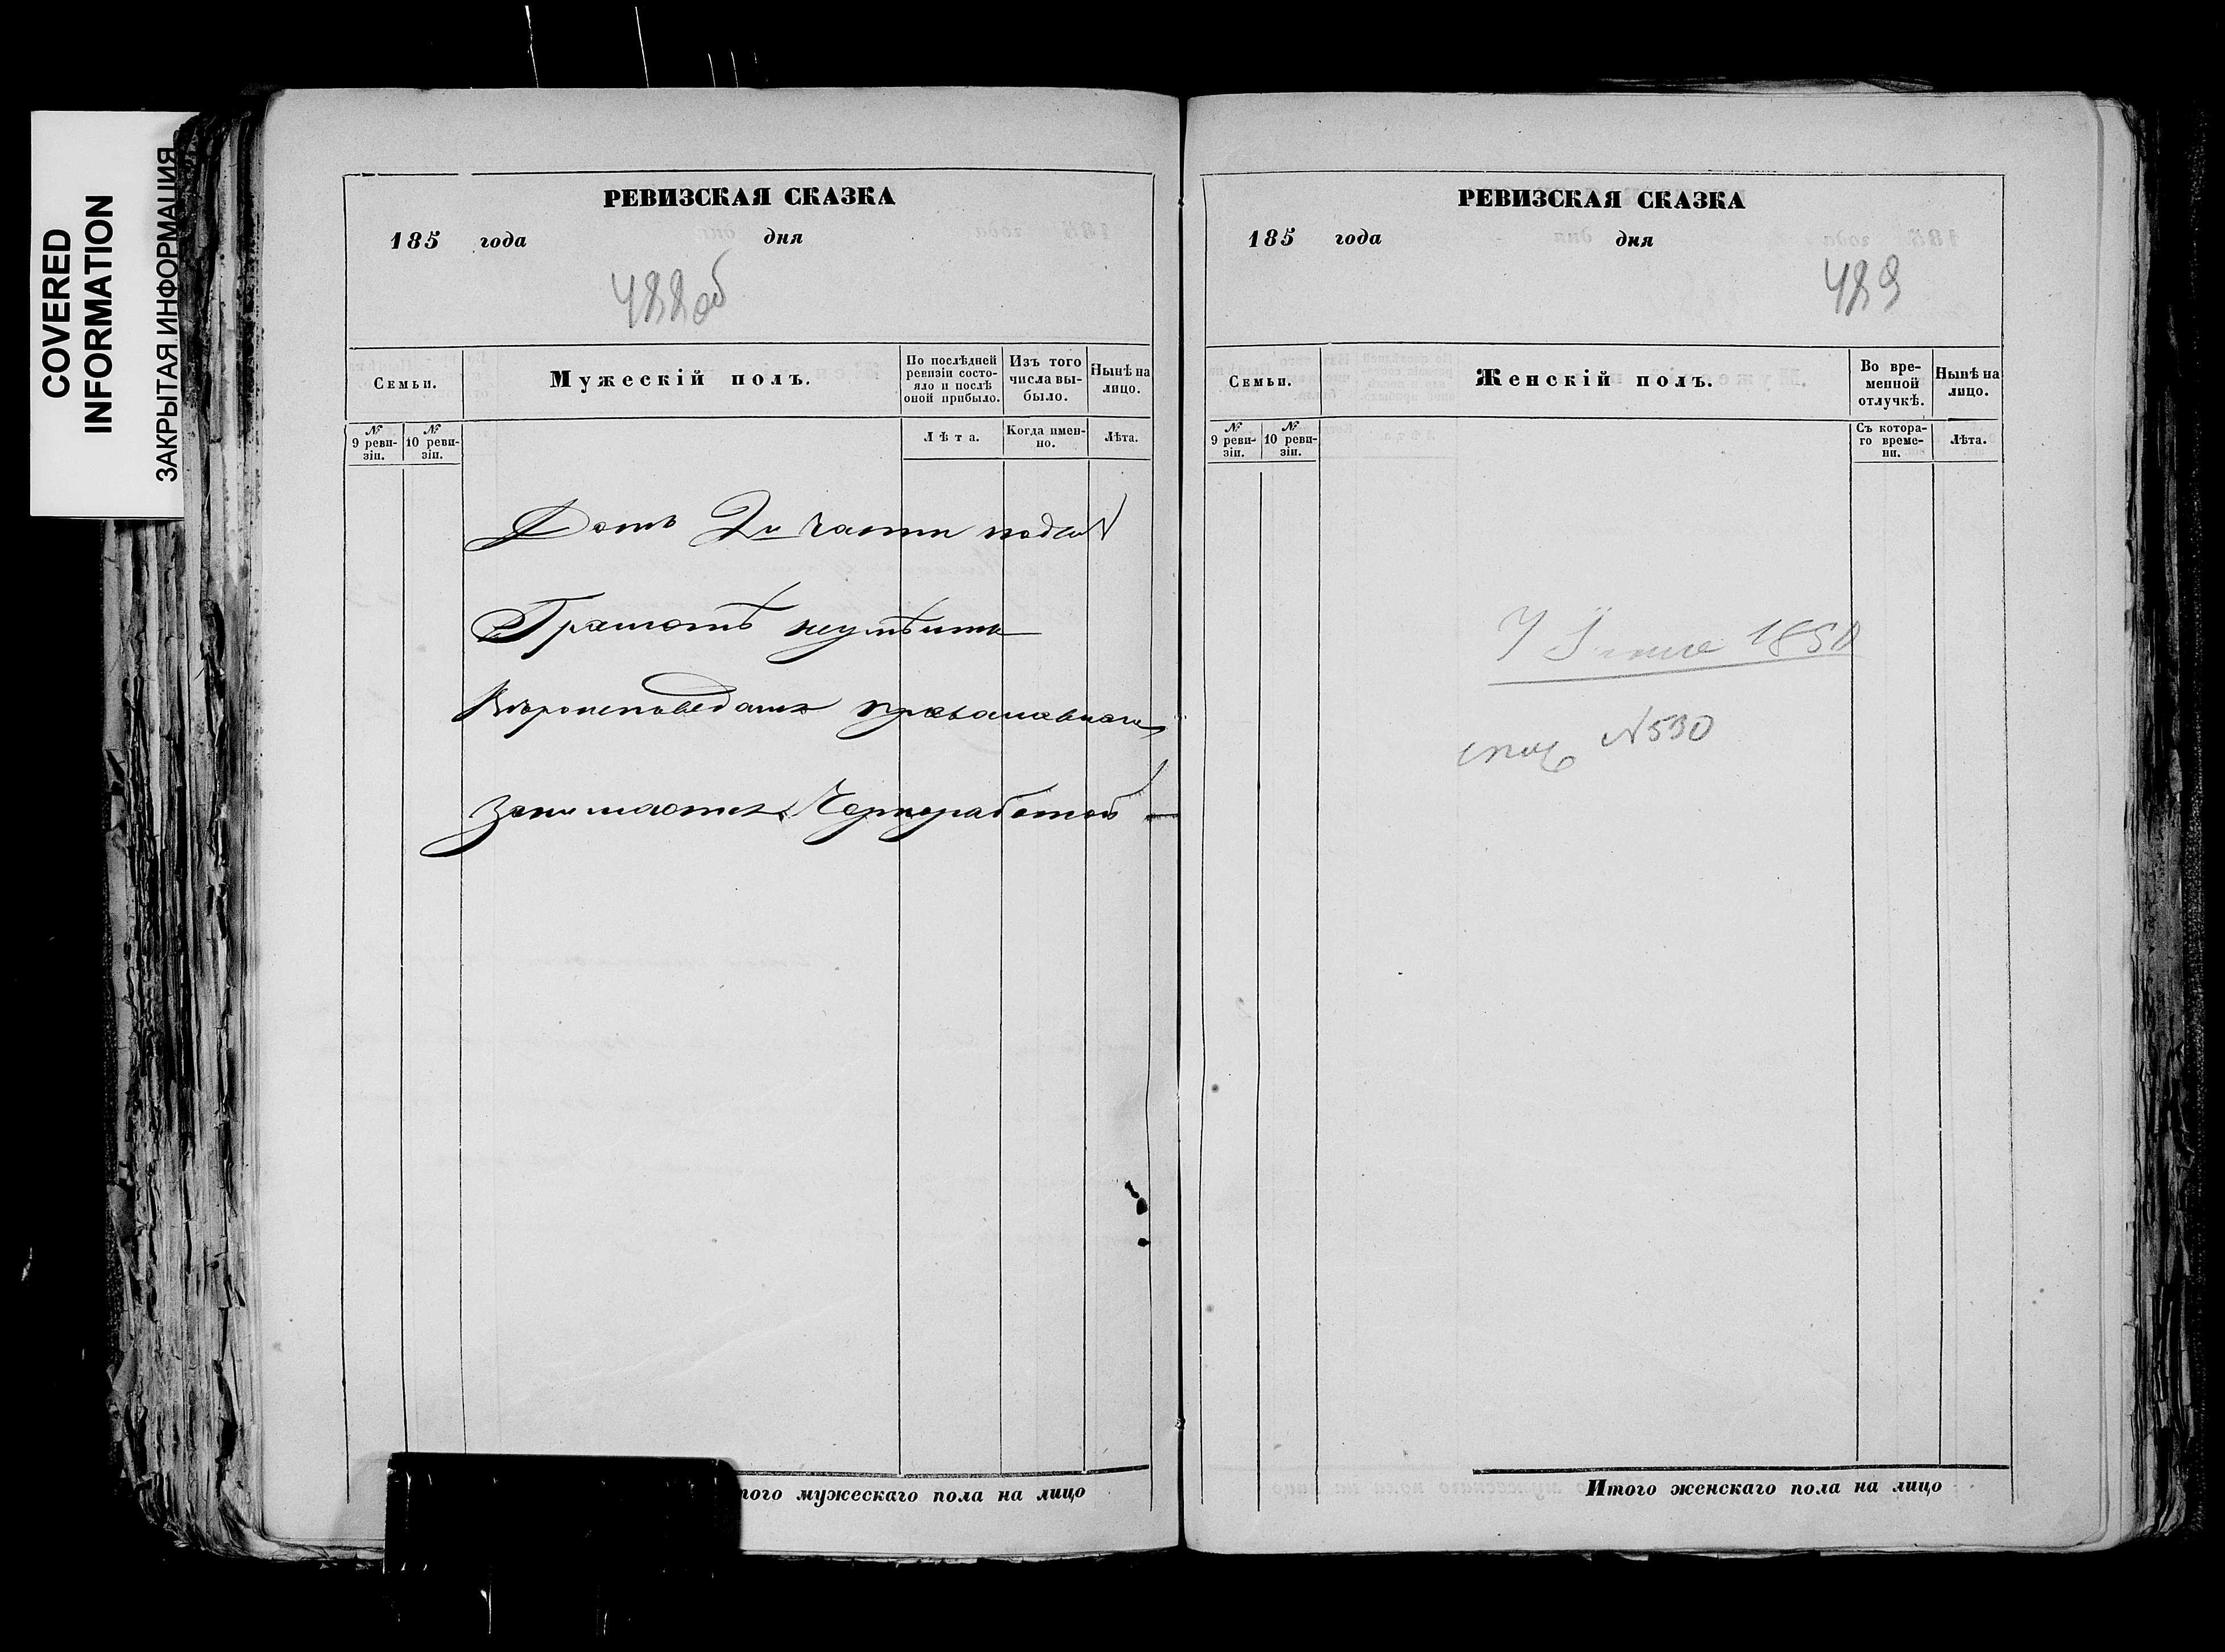 COVERED
INFORMATION
ЗАКРЫТАЯ ИНФОРМАЦИЯ
РЕВИЗСКАЯ СКАЗКА
185 года дня
488об
Семьи.
Мужескій полъ.
По послѣдней ревизіи состояло и послѣ оной прибыло.
Изъ того числа выбыло.
Нынѣ на лицо.
№ 9 ревизіи.
№ 10 ревизіи.
Лѣта.
Когда именно.
Лѣта.
Домъ 2й части подъ №
Грамотѣ неумѣитъ
Вѣроисповедания православнаго
Занимается Черноработой
того мужескаго пола на лицо
РЕВИЗСКАЯ СКАЗКА
185 года дня
489
Семьи.
Женскій полъ.
Во временной отлучкѣ.
Нынѣ на лицо.
№ 9 ревизіи.
№ 10 ревизіи.
Съ котораго времени.
Лѣта.
7 1850
N530
Итого женскаго пола на лицо